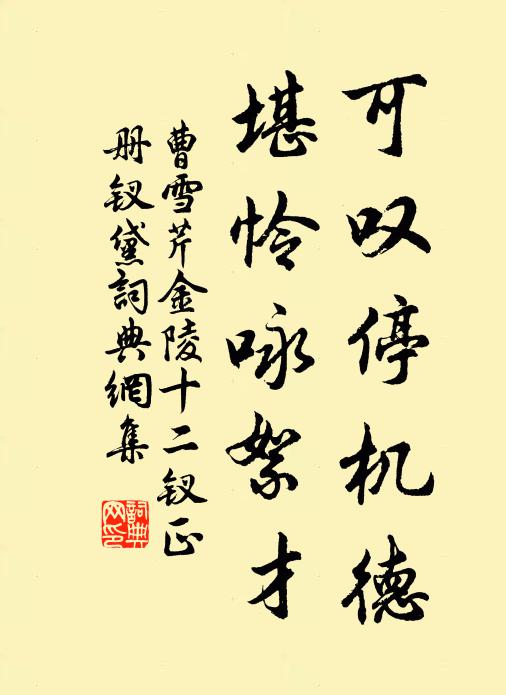 可叹停机德
堪怜咏絮才
曹雪芹金陵十二钗正
册钗黛詞典網集
詞典
网印